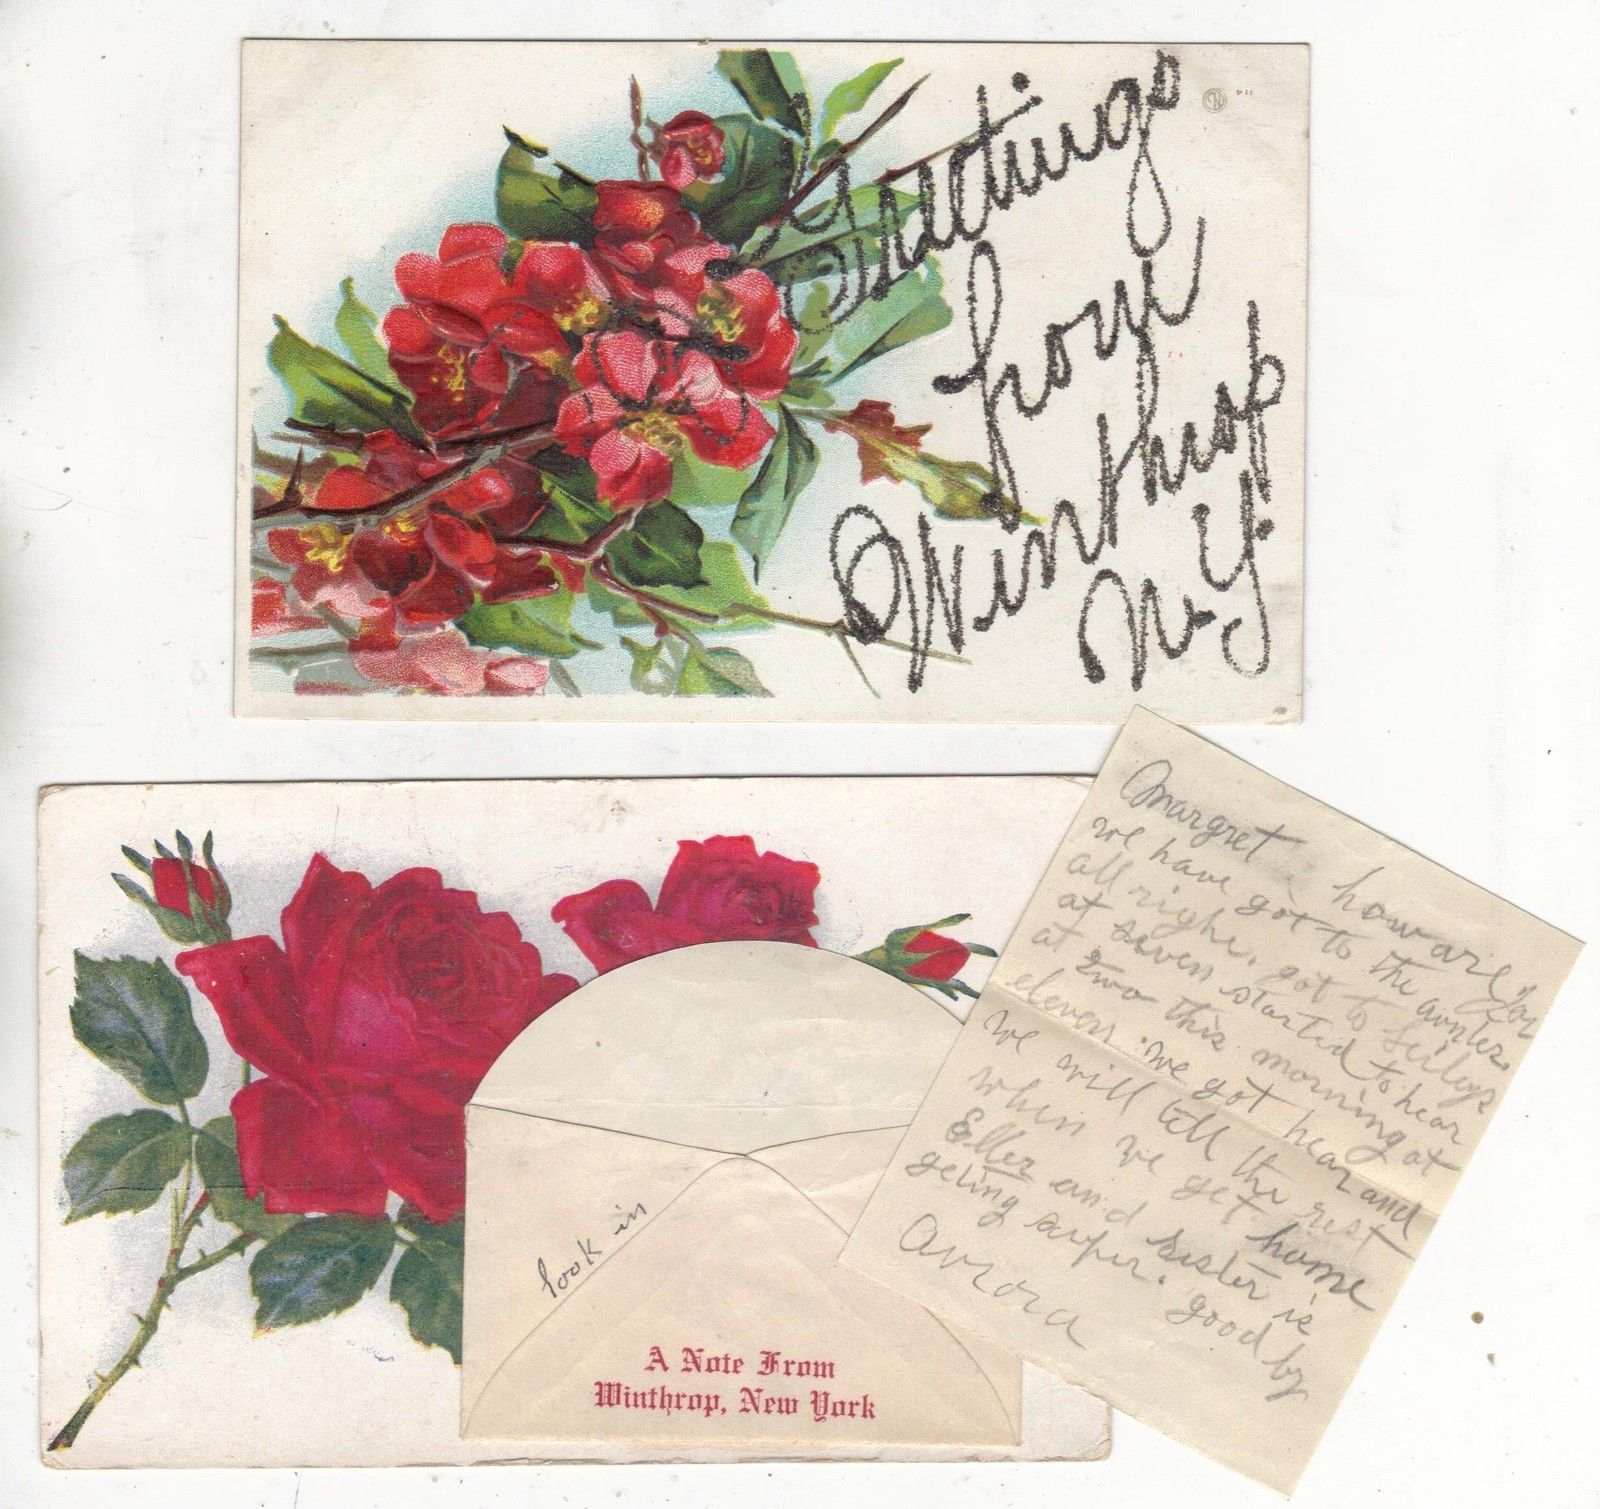 Greetings
from
Winthrop
N.Y.
114
look in
A Note From
Winthrop, New York
Margret how are you
we have got to the aunters.
all right. got to Seileys
at seven started to hear
at two this morning at
eleven. we got hear and
we will tell the rest
when we get home
Eller and sister is
geting super. good by
Avrora